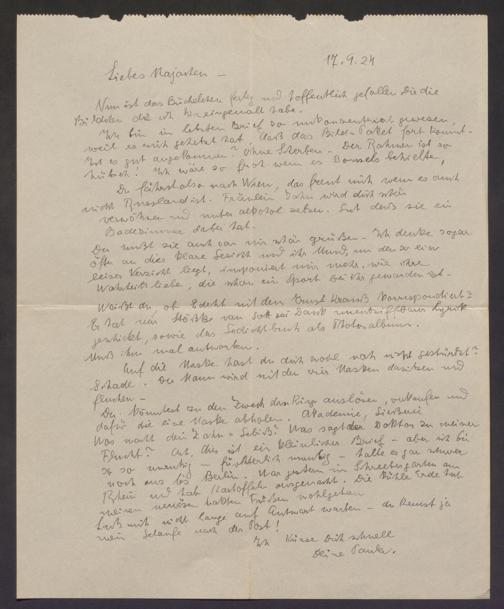 17.9.24
Liebes Majachen –
Nun ist das Büchelchen fertig und hoffentlich gefallen Dir die
Bilder die ich hineingemalt habe.
Ich bin im letzten Brief so unkonzentriert gewesen,
weil es mich gehetzt hat, daß das Bilder-Paket fort kommt.
Ist es gut angekommen? ohne Sterben – Der Rahmen ist so
hübsch! Ich wäre so froh wenn es Bonsels behielte,
Du fährst also nach Wien, das freut mich wenn es auch
nicht Russland ist. Fräulein wird dich schön
verwöhnen und unter alkohol setzen. Gut daß sie ein
Badezimmer dabei hat.
Du mußt sie auch von mir schön grüßen – Ich denke sogar
öfter an dies klare Gesicht und ihr Mund, um den so ein
leiser Verzicht liegt, imponiert mir mehr, wie ihre
Wahrheitsliebe, die schon ein Sport bei ihr geworden ist –
Weißt du, ob Edschi mit dem Ernst korrespondiert?
Er hat mir von Gott sei Dank Lyrik
geschickt, sowie das Gedichtbuch als Photoalbum.
Muß ihm mal antworten.
Auf die Maske hast du dich wohl noch nicht gestürzt?
Schade. Der Mann wird mit den vier Masken dasitzen und
fluchen –
Du könntest zu dem Zweck den Ring auslösen, verkaufen und
dafür die eine Maske abholen. Akademie,
Was macht dein Zahn = Gebiß? Was sagt der Doktor zu meiner
Ach, dies ist ein kleinlicher Brief – aber ich bin
so so unruhig – fürchterlich unruhig – halte es gar schwer
noch aus bis Berlin. War gestern im Schrebergarten am
Rhein und hab Kartoffeln ausgemacht. Die kühle Erde hat
meinen nervösen nackten Füßen wohlgetan
Laß mich nicht lange auf Antwort warten – du kennst ja
mein nach der Post!
Ich küsse Dich schnell
Deine Paula.